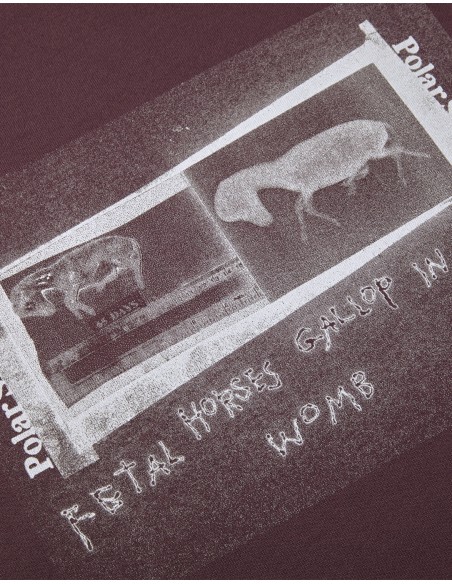 Polar.S
65 DAYS
Polar.S
FETAL HORSES GALLOP IN
WOMB